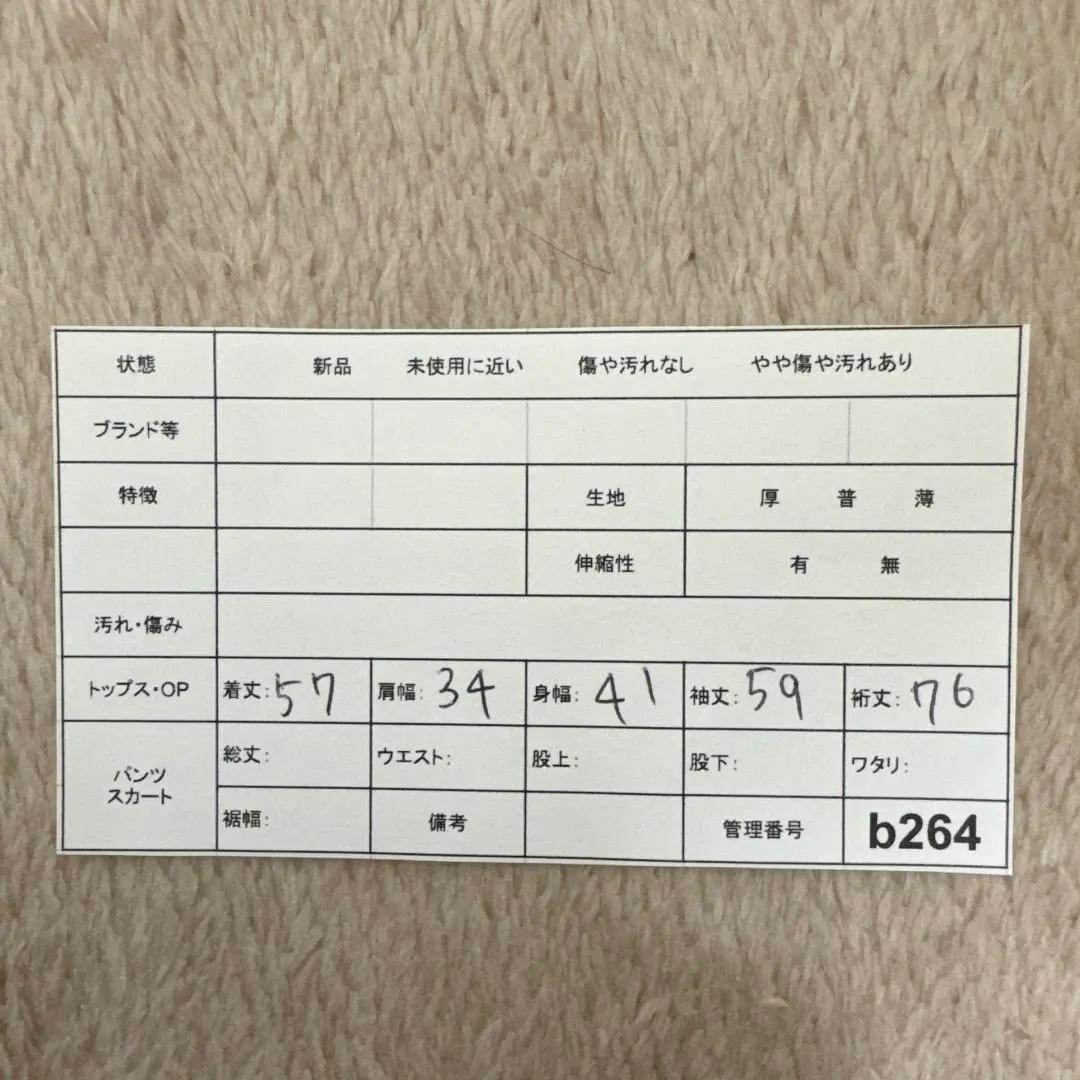 状態 新品 未使用に近い 傷や汚れなし やや傷や汚れあり
ブランド等
特徴 生地 厚 普 薄
伸縮性 有 無
汚れ・傷み
トップス・OP 着丈:57 肩幅:34 身幅:41 袖丈:59 裄丈:76
パンツ
スカート
総丈: ウエスト: 股上: 股下: ワタリ:
裾幅: 備考 管理番号 b264